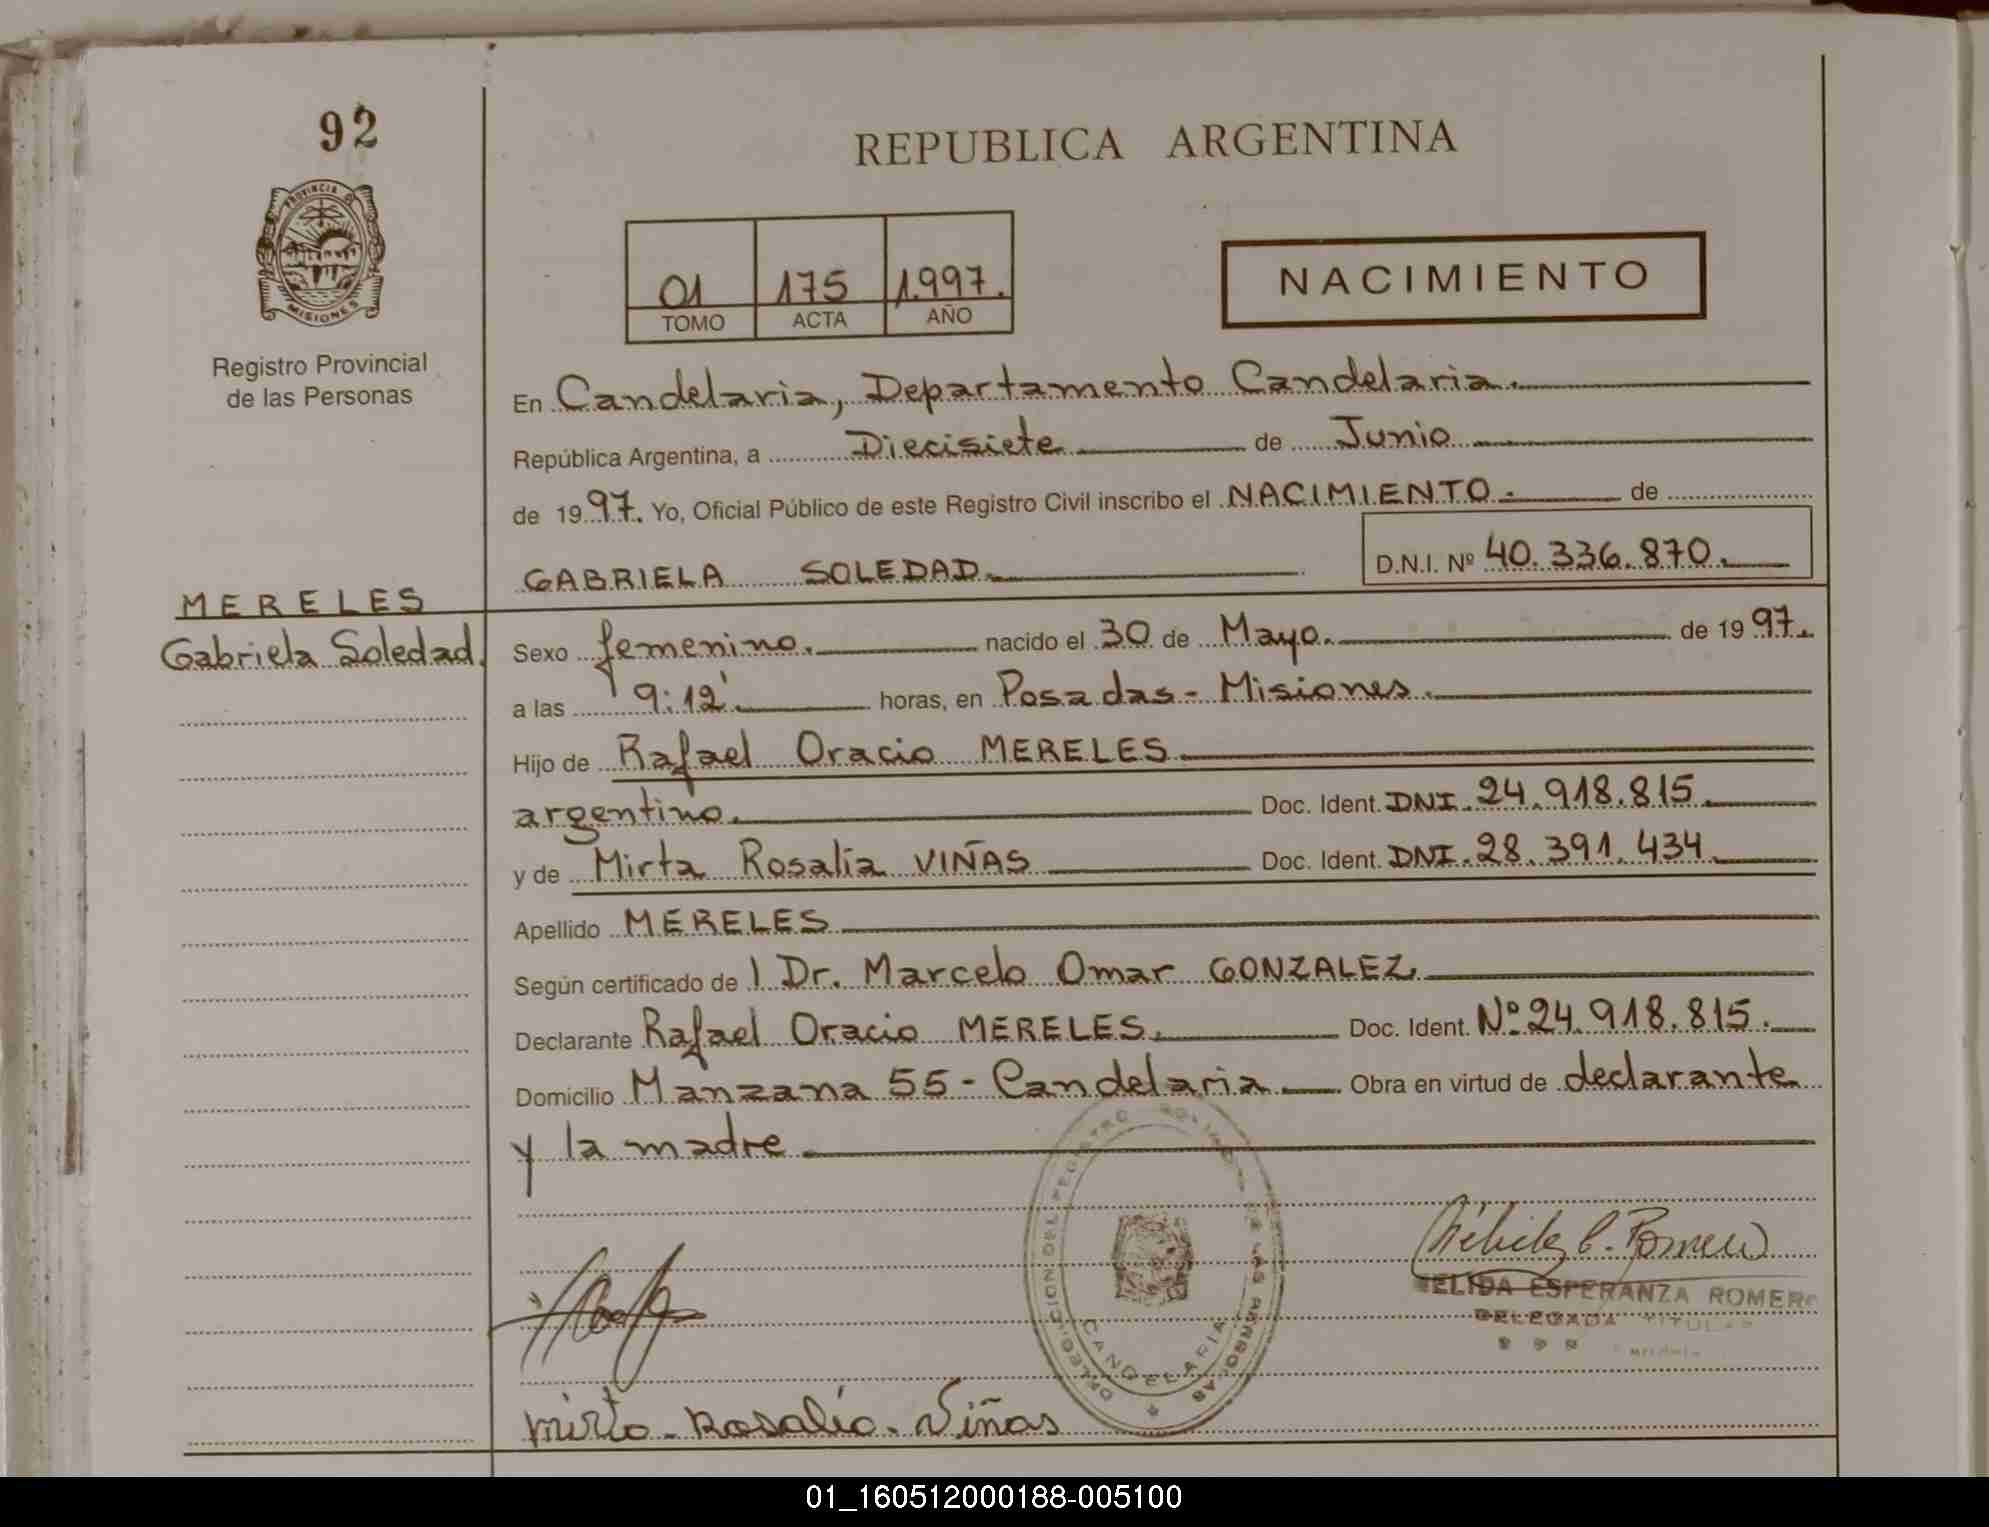 92
REPUBLICA ARGENTINA
PROVINCIA DE
MISIONES
Registro Provincial
de las Personas
01 175 1.997.
TOMO ACTA AÑO
NACIMIENTO
En Candelaria, Departamento Candelaria.
República Argentina, a Diecisiete de Junio
de 1997. Yo, Oficial Público de este Registro Civil inscribo el NACIMIENTO. de
GABRIELA SOLEDAD. D.N.I. Nº 40.336.870.
MERELES
Gabriela Soledad.
Sexo femenino. nacido el 30 de Mayo. de 1997.
a las 9:12' horas, en Posadas - Misiones.
Hijo de Rafael Oracio MERELES
argentino. Doc. Ident. DNI. 24.918.815
y de Mirta Rosalia VIÑAS Doc. Ident. DNI. 28.391.434
Apellido MERELES
Según certificado de l Dr. Marcelo Omar GONZALEZ.
Declarante Rafael Oracio MERELES. Doc. Ident. Nº 24.918.815.
Domicilio Manzana 55 - Candelaria. Obra en virtud de declarante
y la madre
CANDELARIA
ELIDA ESPERANZA ROMERO
DELEGADA TITULAR
mirta Rosalia Viñas
01_160512000188-005100